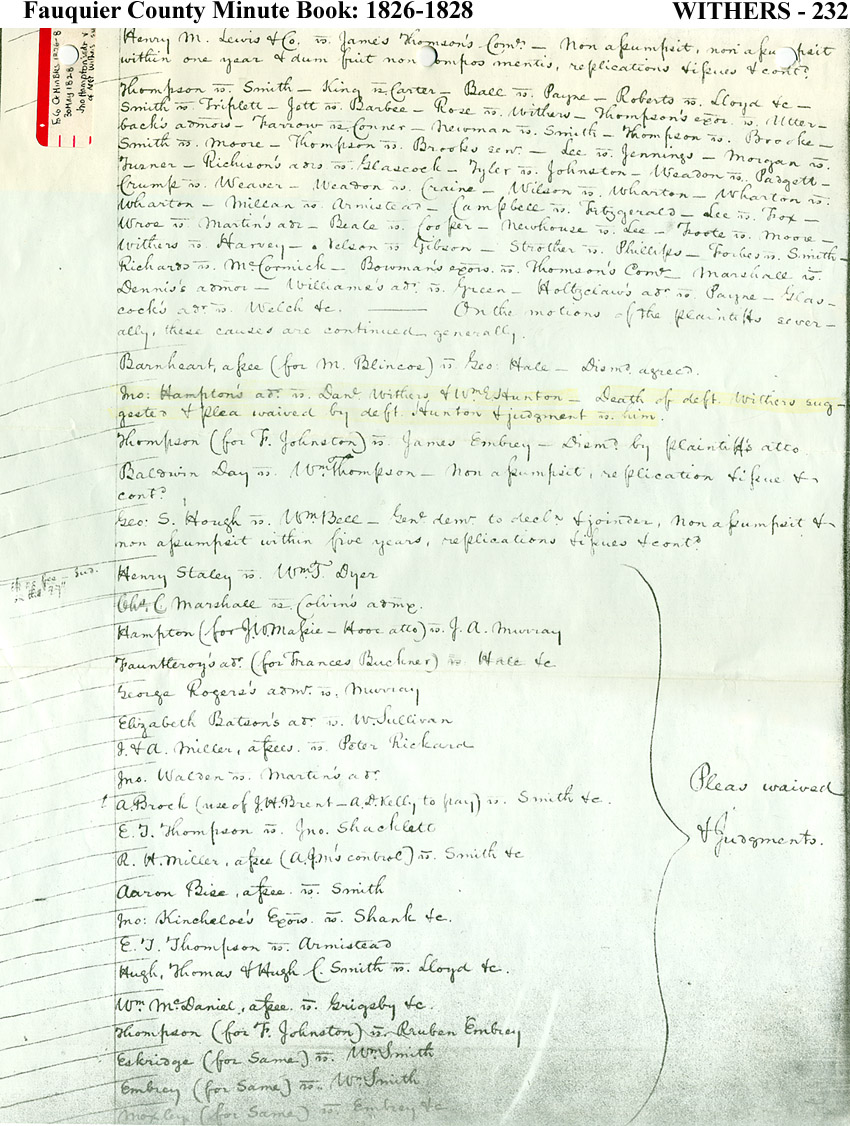 Fauquier County Minute Book: 1826-1828 WITHERS - 232
Henry M. Lewis & Co. vs. James Thomson's Comee. — Non assumpsit, non assumpsit
within one year & dum fuit non compos mentis, replications & issues & contd.
Thompson vs. Smith — King vs. Carter — Ball vs. Payne — Roberts vs. Lloyd &c —
Smith vs. Triplett — Jett vs. Barbee — Rose vs. Withers — Thompson's exor. vs. Utter-
back's admors — Farrow vs. Conner — Newman vs. Smith — Thompson vs. Brooke —
Smith vs. Moore — Thompson vs. Brooks senr. — Lee vs. Jennings — Morgan vs.
Turner — Richison's adrs vs. Glascock — Tyler vs. Johnston — Weadon vs. Padgett —
Crump vs. Weaver — Weadon vs. Craine — Wilson vs. Wharton — Wharton vs.
Wharton — Millan vs. Armistead — Campbell vs. Fitzgerald — Lee vs. Fox —
Wroe vs. Martin's adr — Beale vs. Cooper — Newhouse vs. Lee — Foote vs. Moore —
Withers vs. Harvey — Nelson vs. Gibson — Strother vs. Phillips — Forbes vs. Smith —
Richards vs. McCormick — Bowman's exors. vs. Thomson's Comee. Marshall vs.
Dennis's admor — Williams's adr. vs. Green — Holtzclaw's adr. vs. Payne — Glas-
cock's adr. vs. Welch &c. —— On the motions of the plaintiffs sever-
ally, these causes are continued generally.
Barnheart, assee (for M. Blincoe) vs. Geo: Hale — Dismd. agreed.
Jno: Hampton's adr. vs. Danl. Withers & Wm. E. Hunton — Death of deft. Withers sug-
gested & plea waived by deft. Hunton & judgment vs. him.
Thompson (for F. Johnston) vs. James Embrey — Dismd. by plaintiff's atto.
Baldwin Day vs. Wm. Thompson — Non assumpsit, replication & issue &
contd.
Geo: S. Hough vs. Wm. Bell — Genl. demr. to decln. & joinder, Non assumpsit &
non assumpsit within five years, replications & issues & contd.
Henry Staley vs. Wm. T. Dyer
Chs. C. Marshall vs. Colvin's admx.
Hampton (for J. W. Massie — Hooe atto) vs. J. A. Murray
Fauntleroy's adr. (for Frances Buckner) vs. Hale &c
George Rogers's admr. vs. Murray
Elizabeth Batson's adr vs. W. Sullivan
J. & A. Miller, assees. vs. Peter Rickard
Jno. Walden vs. Martin's adr.
A. Brock (use of J. H. Brent — A. D. Kelly to pay) vs. Smith &c.
E. T. Thompson vs. Jno. Shacklett
R. H. Miller, assee (A. J. M's control) vs. Smith &c
Aaron Bise, assee. vs. Smith
Jno: Kincheloe's Exors. vs. Shank &c.
E. T. Thompson vs. Armistead
Hugh, Thomas & Hugh C. Smith vs. Lloyd &c.
Wm. McDaniel, assee. vs. Grigsby &c.
Thompson (for F. Johnston) vs. Reuben Embrey
Eskridge (for Same) vs. Wm. Smith
Embrey (for Same) vs. Wm. Smith
Moxley (for Same) vs. Embrey &c
Pleas waived
& Judgments.